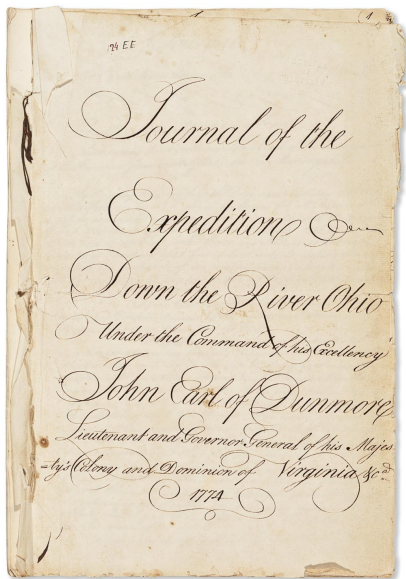 24 EE
1
Journal of the
Expedition
Down the River Ohio
Under the Command of his Excellency
John Earl of Dunmore
Lieutenant and Governor General of his Majes
=ty's Colony and Dominion of Virginia &c
1774